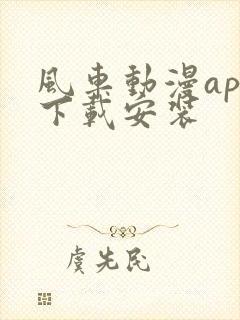 風車動漫ap
下載安裝
虞先民